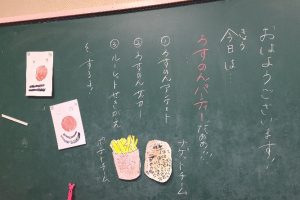 おはようございます!!
きょう
今日は
うすのんパーティーだよの!!
①うすのんアンケート
②うすのんサッカー
③ルーレットせきがえ
を するよ。
ナゲットチーム
ポテトチーム